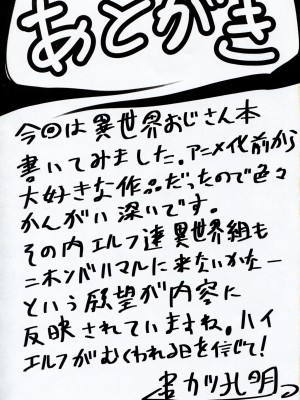 あとがき
今回は異世界おじさん本
書いてみました。アニメ化前から
大好きな作品だったので色々
かんがい深いです。
その内エルフ達異世界組も
ニホンバハマルに来ないかなー
という願望が内容に
反映されていますね。ハイ
エルフがむくわれる日を信じて!
串カツ孔明。